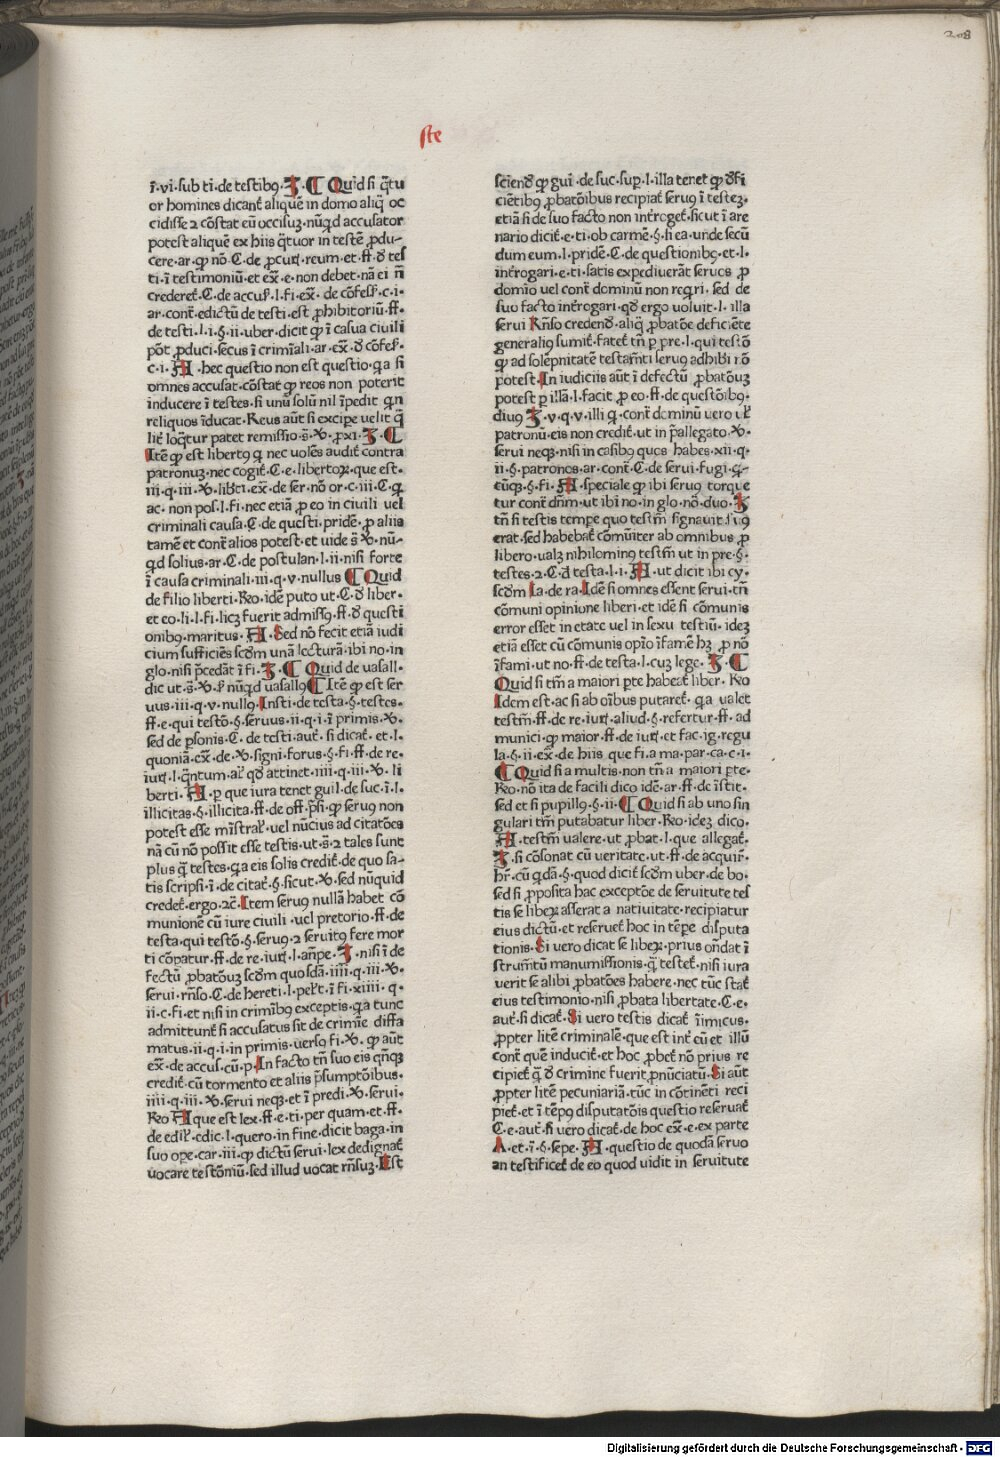 208
ste
ī·vi·sub ti·de testibꝰ· J·C Quid si q̄tu
or homines dicant̄ aliquē in domo aliq̄ oc
cidisse ⁊ cōstat eū occisuꝫ·nūq̄d accusator
potest aliquē ex hiis q̄tuor in testē ꝓdu-
cere·ar·ꝙ nō·C·de ꝓcur̄·reum·et·ff·ꝺ tes
ti·ī testimoniū·et ex̄·e·non debet·nā ei n̄
crederet̄·C·de accus̄·l·fi·ex̄·de cōfess̄·c·i·
ar·cont̄·edictū de testi·est ꝓhibitoriū·ff·
de testi·l·i·§·ii·uber·dicit ꝙ ī casua ciuili
pōt ꝓduci·secus ī crimīali·ar·ex̄·ꝺ cōfes̄·
c·i· A·hec questio non est questio·ꝗa si
omnes accusat·cōstat ꝙ reos non poterit
inducere ī testes·si unū solū nil īpedit ꝗn
reliquos īducat·Reus aūt si excipe uelit q̄
lit̄ loq̄tur patet remissio·s̄·ꝟ·ꝓxi· J·C
Itē ꝙ est libertꝰ ꝗ nec uolēs audit̄ contra
patronuꝫ·nec cogit̄·C·e·libertoꝝ·que est·
iii·q·iii·ꝟ·lib̄ti·ex̄·de ser·nō or·c·iii·C·ꝗ
ac·non pos·l·fi·nec etiā ꝓ eo in ciuili uel
criminali causa·C·de questi·pridē·ꝓ aliis
tamē et cont̄ alios potest·et uide s̄ ꝟ·nū-
q̄d solius·ar·C·de postulan·l·ii·nisi forte
ī causa criminali·iii·q·v·nullus C Quid
de filio liberti·Ro·idē puto ut·C·ꝺ liber·
et eo·li·l·fi·licꝫ fuerit admissꝰ·ff·ꝺ questi
onibꝰ·maritus· A·Sed nō fecit etiā iudi
cium sufficiēs scꝺm unā lecturā·ibi no·in
glo·nisi p̄cedāt ī fi· J·C Quid de uasall·
dic ut·s̄·ꝟ·s̄ nūq̄d uasallꝰ C Itē ꝙ est ser
uus·iii·q·v·nullꝰ·Insti·de testa·§·testes·
ff·e·qui testō·§·seruus·ii·q·i·ī primis·ꝟ·
sed de ꝑsonis·C·de testi·aut̄·si dicat̄·et·l·
quoniā·ex̄·de·ꝟ·signi·forus·§·fi·ff·de re·
iur̄·l·q̄ntum·ar̄ qꝺ attinet·iiii·q·iii·ꝟ·li
berti· A·ꝑ que iura tenet guil·de suc·ī·l·
illicitas·§·illicita·ff·de off·p̄si·ꝙ seruꝰ non
potest esse mīstral̄·uel nūcius ad citatōes
nā cū nō possit esse testis·ut·s̄·⁊ tales sunt
plus q̄ testes·ꝗa eis solis credit̄·de quo sa-
tis scripsi·ī·de citat̄·§·sicut·ꝟ·sed nūquid
credet̄·ergo·⁊c̄·Item seruꝰ nullā habet cō
munionē cū iure ciuili·uel pretorio·ff·de
testa·qui testō·§·seruꝰ·⁊ seruitꝰ fere mor
ti cōꝑatur·ff·de re·iur̄·l·an̄pe· J·nisi ī de
fectū ꝓbatōuꝫ scꝺm quosdā·iiii·q·iii·ꝟ·
serui·rn̄so·C·de hereti·l·pel̄t·ī fi·xiiii·q·
ii·c·fi·et nisi in crimībꝰ exceptis·ꝗa tunc
admittunt̄ si accusatus sit de crimīe diffa
matus·ii·q·i·in primis·uersꝰ fi·ꝟ·ꝙ aūt
ex̄·de accus·cū·p·In facto tn̄ suo eis qn̄ꝗꝫ
credit̄·cū tormento et aliis p̄sumptōibus·
iiii·q·iii·ꝟ·serui neqꝫ·et ī predi·ꝟ·serui·
Ro A que est lex·ff·e·ti·per quam·et·ff·
de edil̄·edic·l·quero·in fine·dicit baga·in
suo ope·car·iii·ꝙ dictū serui·lex dedignat̄
uocare testōniū·sed illud uocat rn̄suꝫ·Est
scīenꝺ ꝙ gui·de suc·suꝑ·l·illa tenet ꝙ ꝺfi
ciētibꝰ ꝓbatōibus recipiat̄ seruꝰ ī testeꝫ·
etiā si de suo facto non int̄roget̄·sicut ī are
nario dicit̄·e·ti·ob carmē·§·si ea·unde secū
dum eum·l·pridē·C·de questionibꝰ·et·l·
int̄rogari·e·ti·satis expediuerāt seruos ꝓ
domīo uel cont̄ dominū non reꝗri·sed de
suo facto int̄rogari·qꝺ ergo uoluit·l·illa
serui Rn̄so credenꝺ·aliꝗ ꝓbatōe deficiēte
generaliꝰ sumit̄·fatet̄ tn̄ ꝑ pre·l·qui testō
ꝙ ad solēpnitatē testam̄ti seruꝰ adhibi nō
potest·In iudiciis aūt ī defectū ꝓbatōuꝫ
potest ꝑ illā·l·facit ꝓ eo·ff·de questōibꝰ·
diuꝰ J·v·q·v·illi ꝗ·cont̄ dominū uero ul̄
patronū·eis non credit̄·ut in p̄allegato·ꝟ·
serui neqꝫ·nisi in casibꝰ quos habes·xii·q·
ii·§·patronos·ar·cont̄·C·de serui·fugi·q̄-
tūqꝫ·§·fi· A·speciale ꝙ ibi seruꝰ torque
tur cont̄ dn̄m·ut ibi no·in glo·nō·duo· J
tn̄ si testis tempe quo testm̄ signauit·s̄uꝰ
erat·sed habebat̄ cōmūiter ab omnibus ꝓ
libero·ualꝫ nihilominꝰ testm̄ ut in pre·§·
testes·⁊·C·ꝺ testa·l·i· A·ut dicit ibi cy·
scꝺm Ia·de ra·Idē si omnes essent serui·tn̄
cōmuni opinione liberi·et idē si cōmunis
error esset in etate uel in sexu testiū·ideꝫ
etiā esset cū cōmunis opīo īfamē hꝫ ꝓ nō
īfami·ut no·ff·de testa·l·cuꝫ lege· J·C
Quid si tm̄ a maiori ꝑte habeat̄ liber·Ro
Idem est·ac si ab oībus putaret̄·ꝗa ualet
testm̄·ff·de re·iur̄·aliud·§·refertur·ff·ad
munici·ꝙ maior·ff·de iur̄·et fac·ig·regu
la·§·ii·ex̄·de hiis que fi·a ma·par·ca·c·i·
C Quid si a multis·non tn̄ a maiori ꝑte·
Ro·nō ita de facili dico idē·ar·ff·de īstit·
sed et si pupillꝰ·§·ii· C Quid si ab uno sin
gulari tm̄ putabatur liber·Ro·ideꝫ dico·
A·testm̄ ualere·ut ꝓbat·l·que allegat̄·
J·si cōsonat cū ueritate·ut·ff·de acquir̄·
hr̄·cū ꝗdā·§·quod dicit̄ scꝺm uber·de bo·
sed si ꝓposita hac exceptōe de seruitute tes
tis se libeꝝ asserat a natiuitate·recipiatur
eius dictū·et reseruet̄ hoc in tēpe disputa
tionis·Si uero dicat se libeꝝ·prius on̄dat ī
strum̄tū manumissionis·q̄ testet̄·nisi iura
uerit se alibi ꝓbatōes habere·nec tūc stat̄
eius testimonio·nisi ꝓbata libertate·C·e·
aut̄·si dicat̄·Si uero testis dicat̄ īimicus·
ꝓpter litē criminalē·que est int̄ cū et illū
cont̄ quē inducit̄·et hoc ꝓbet̄ nō prius re
cipiet̄ q̄ ꝺ crimine fuerit ꝓnūciatū·Si aūt
ꝓpter litē pecuniariā·tūc in cōtinēti reci
piet̄·et ī tēpꝰ disputatōis questio reseruat̄
C·e·aut̄·si uero dicat̄·de hoc ex̄·e·ex parte
A·et·ī·§·sepe· A·questio de quodā seruo
an testificet̄ de eo quod uidit in seruitute
Digitalisierung gefördert durch die Deutsche Forschungsgemeinschaft - DFG